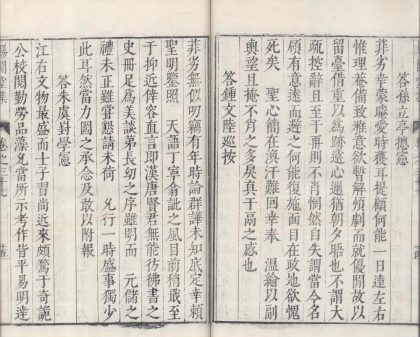 答徐立亭總憲
菲劣幸蒙聽愛時獲耳提顧何能一日違左右
惟理菴備致雅意欲暫解煩劇而就優閒故以
留臺借重以為跡遠心邇猶朝夕聆也不謂大
疏控辭且至于不肖惘然自失謂當今名
顧有意遠而避之何能復施面目在政地欲愧
死矣 聖心簡在汗難回幸奉 溫綸以副
輿望且掩不肖之多戾真干之感也
答鍾文陸巡按
菲劣無似明竊有年時論群譁未知底定幸賴
聖明鑒照 天語丁寧翕訿之風目前稍戢至
于抑近倖容直言即漢唐賢君無能彷彿書之
史冊足為美談第長幼之序雖明而 元儲之
禮未正雖嘗懇請未 允行一時盛事獨少
此耳然當力圖之承念及敢以附報
答朱虞對學憲
江右文物最盛而士子習尚近來頗騖于奇詭
公校閱勤勞品藻允當所示考作皆平易明達
卷之三十七